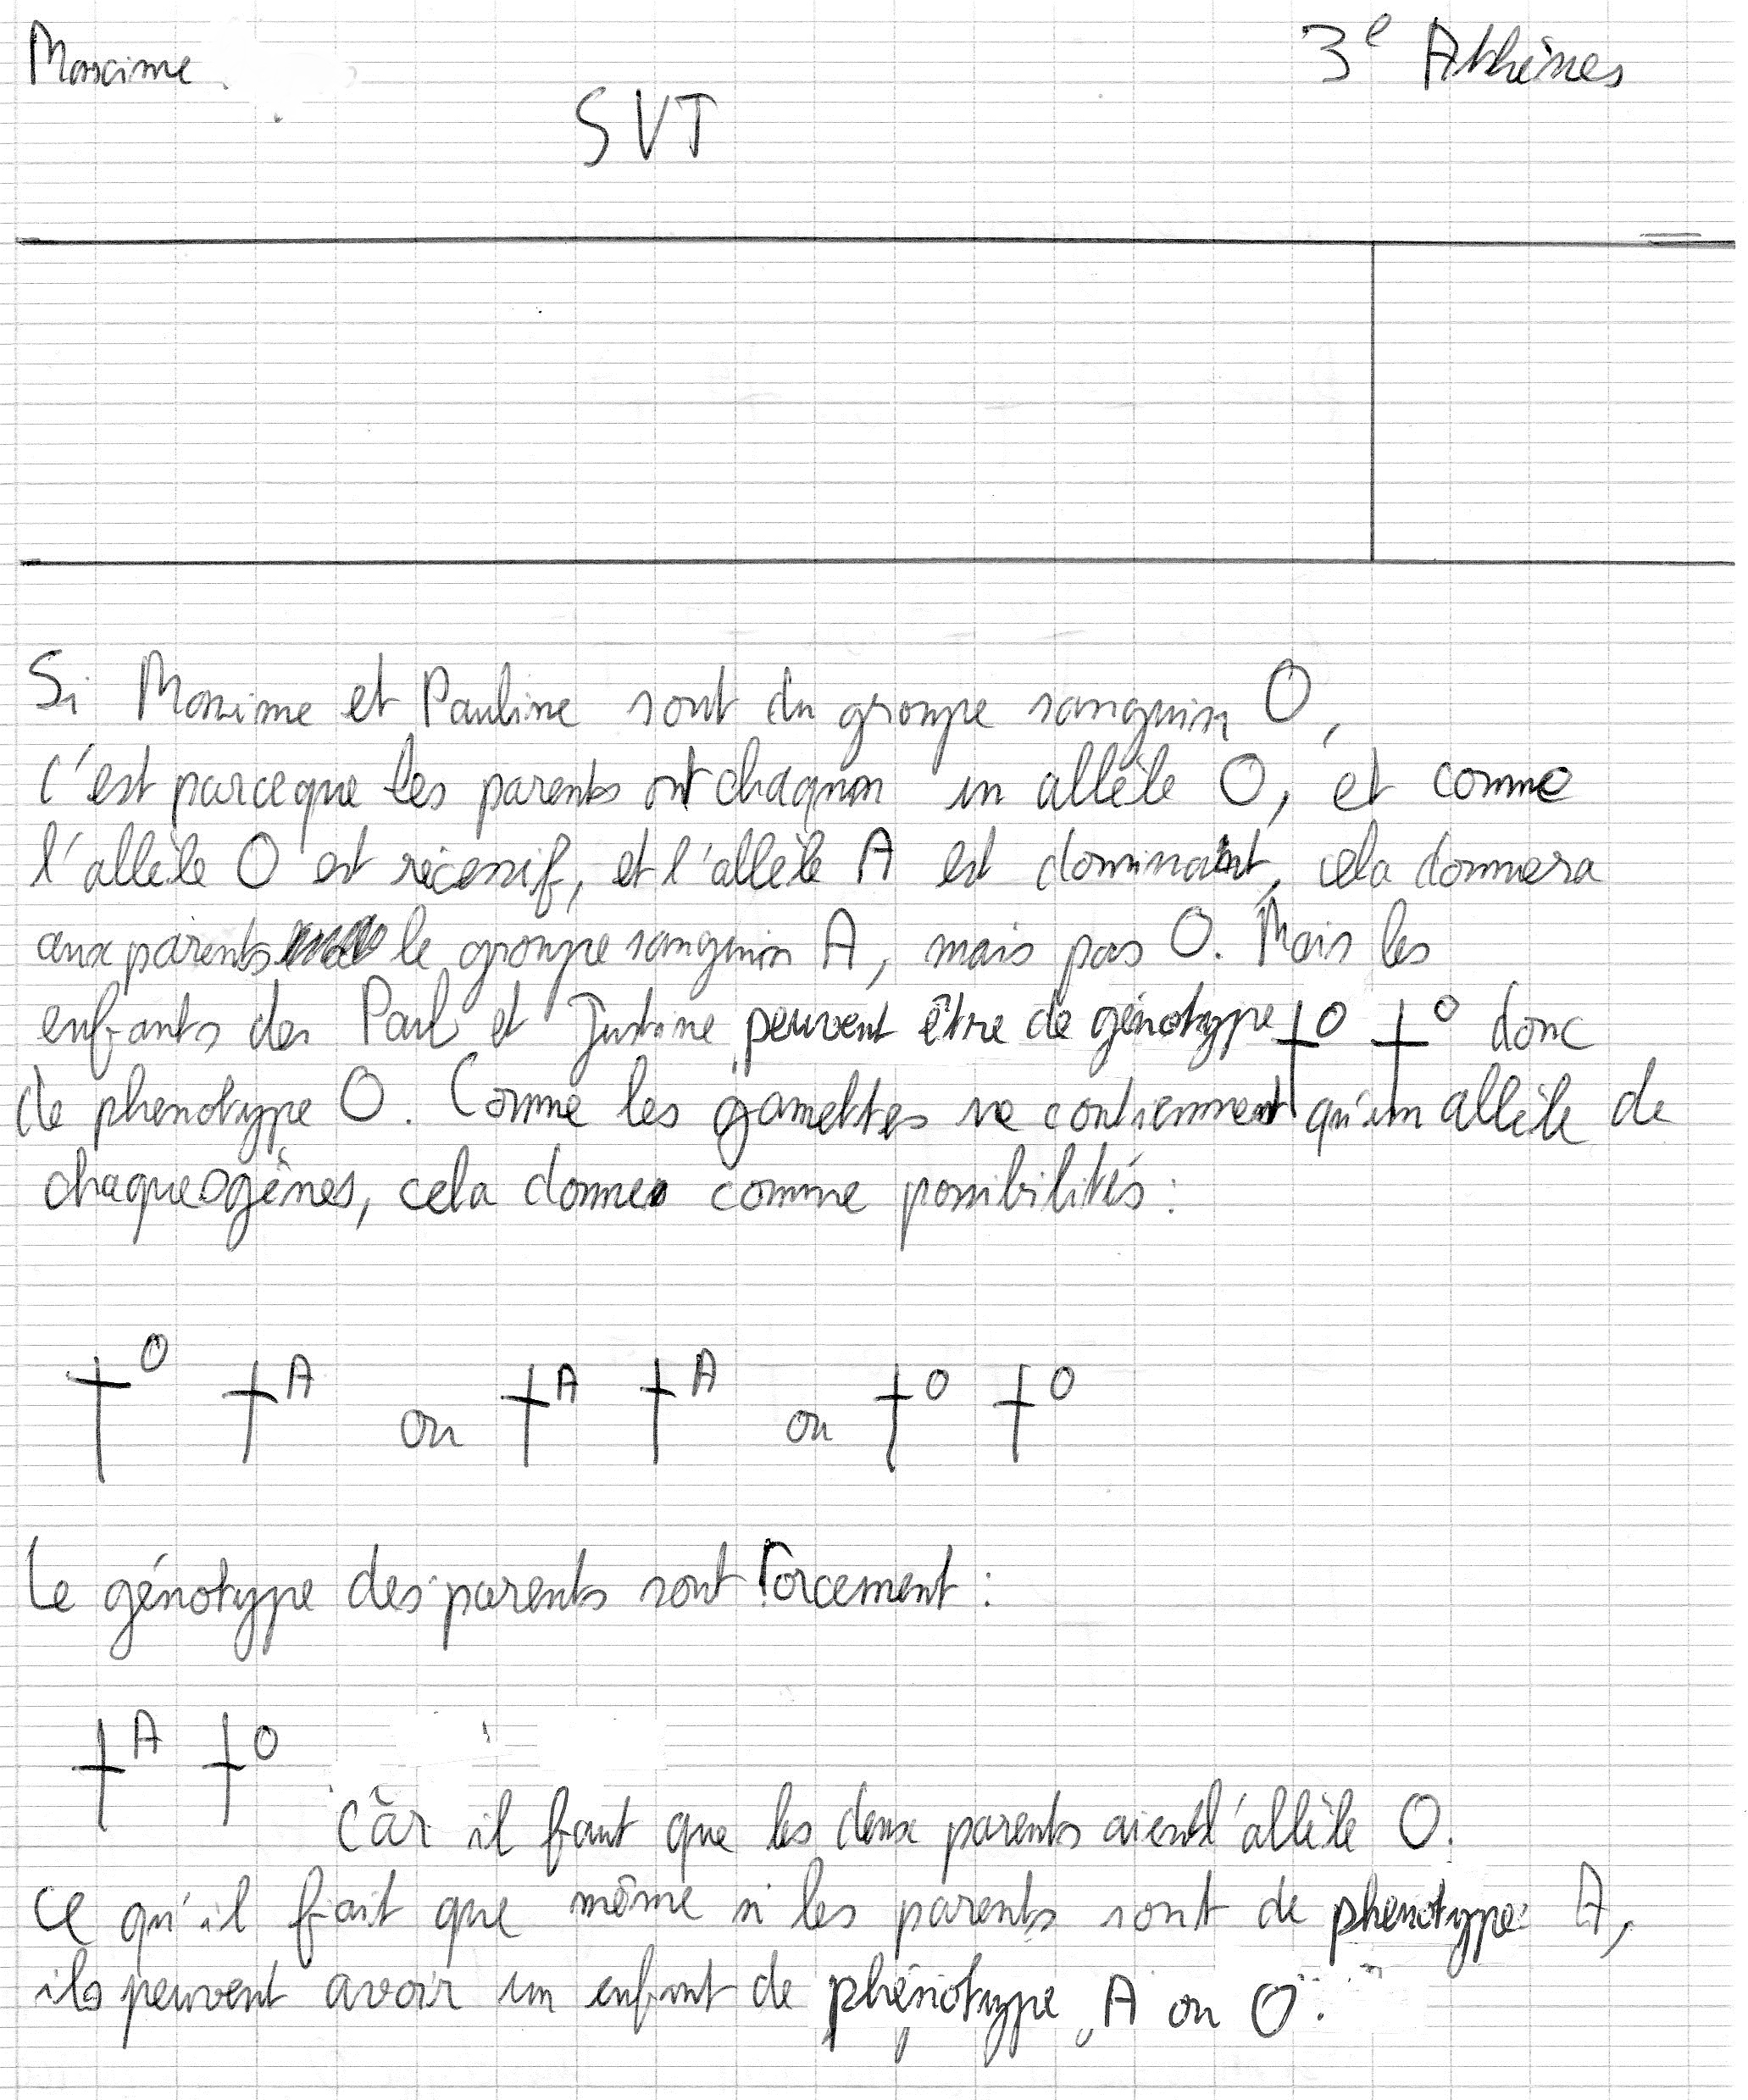 Maxime
3e Athènes
SVT
Si Maxime et Pauline sont du groupe sanguin O,
c'est parceque les parents ont chaqun un allèle O, et comme
l'allèle O est récessif, et l'allèle A est dominant, cela donnera
aux parents le groupe sanguin A, mais pas O. Mais les
enfants des Paul et Justine peuvent être de génotype O O donc
de phenotype O. Comme les gamettes ne contiennent qu'un allèle de
chaque gènes, cela donne comme possibilités :
O A ou A A ou O O
Le génotype des parents sont forcement :
A O
Car il faut que les deux parents aient l'allèle O.
Ce qu'il fait que même si les parents sont de phenotype A,
ils peuvent avoir un enfant de phénotype A ou O.